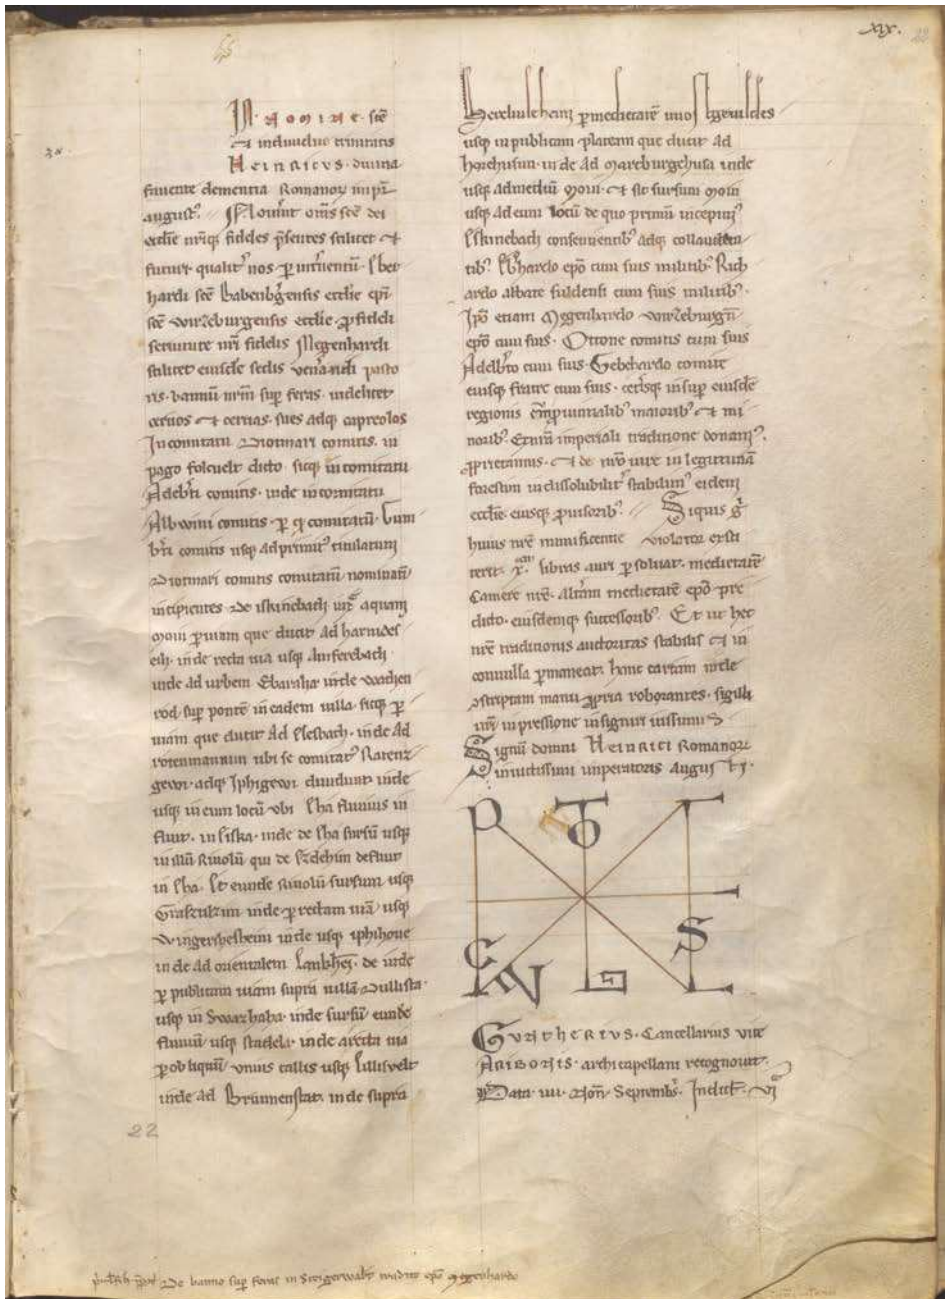 XIX.
22
IN NOMINE scē
et individue trinitatis
HEINRICVS divina
favente clementia Romanoꝝ impr̄
august᷒. Noverit om̄s scē dei
ecclīe nr̄iq; fideles p̄sentes scilicet et
futuri qualit᷑ nos ꝑ int᷑ventū Eber
hardi scē Babenb᷑gensis ecclīe epī
scē Wirzeburgensis ecclīe ꝓ fideli
servitute nr̄i fidelis Megenhardi
scilicet eiusdē sedis ven᷑andi pasto
ris bannū nr̄m sup feras videlicet
cervos et cervas sues adq; capreolos
In comitatu Diotmari comitis in
pago folcvelt dicto sicq; in comitatu
Adeb᷑ti comitis inde in comitatu
Albwini comitis ꝑ q; comitatū Gum
b᷑ti comitis usq; ad primit᷒ titulatum
Diotmari comitis comitatū nominatī
incipientes De iskinebach iux̄ aquam
Moin ꝑ viam que ducit ad harnides
eih inde recta via usq; Anferebach
inde ad urbem Ebaraha inde wachen
rod sup pontē in eadem villa sicq; ꝑ
viam que ducit Ad Elesbach inde Ad
rotenmannun ubi se comitat᷒ Ratenz
gewi adq; Iphigewi dividunt inde
usq; in eum locū ubi Eha fluvius in
fluit in liska inde de Eha sursū usq;
in illū rivolū qui de Ezelehim defluit
in Eha Et eundē rivolū sursum usq;
inde ꝑ rectam viā usq;
Wingersheheim inde usq; iphihove
inde ad orientalem Lankhei de inde
ꝑ publicam viam supra villā Dullista
usq; in Swarzhaha inde sursū eundē
fluviū usq; stadela inde arecta via
ꝑ obliquū unius callis usq; Lilliselt
inde ad Brūnenstat inde supra
Herehilteheim ꝑ medietatē unoſ Egeruldes
usq; in publicam plateam que ducit ad
horehusun inde Ad Marcburgehusa inde
usq; ad mediū Moin et sic sursum Moin
usq; ad eum locū de quo primū incepim᷒
Eskinebach consentientib᷒ adq; collaudan
tib᷒ Eb᷑hardo epō cum suis militib᷒ Rich
ardo abbate fuldensi cum suis militib᷒
Ipō etiam Megenhardo Wirzeburgn̄
epō cum suis Ottone comitis cum suis
Adelb᷑to cum suis Gebehardo comite
eiusq; fratre cum suis cet᷑isq; insup eiusdē
regionis cōpvincialib᷒ maiorib᷒ et mi
norib᷒ Ex nr̄a imperiali traditione donam᷒
ꝓprietamus et de nr̄o iure in legitimū
forestum indissolubilit᷑ stabilim᷒ eidem
ecclīe eiusq; ꝓvisorib᷒ Siquis g᷑
huius nr̄e munificentie violator exsti
terit libras auri ꝑsolvat medietatē
Camere nr̄e Alt᷑am medietatē epō pre
dicto eiusdemq; successorib᷒ Et ut hec
nr̄e traditionis auctoritas stabilis et in
convulsa ꝑmaneat hanc cartam inde
ꝯscriptam manu ꝓpria roborantes sigilli
nr̄i inpressione insigniri iussimus
Signū domni HEINRICI Romanoꝝ
invictissimi imperatoris Augusti
GVNTHERIVS Cancellarius vice
ARIBONIS archicapellani recognovit
Data iiii Non̄ Septemb᷑ Indict̄ VI
22
De banno sup feras in Steigerwalt tradito epō Megenhardo